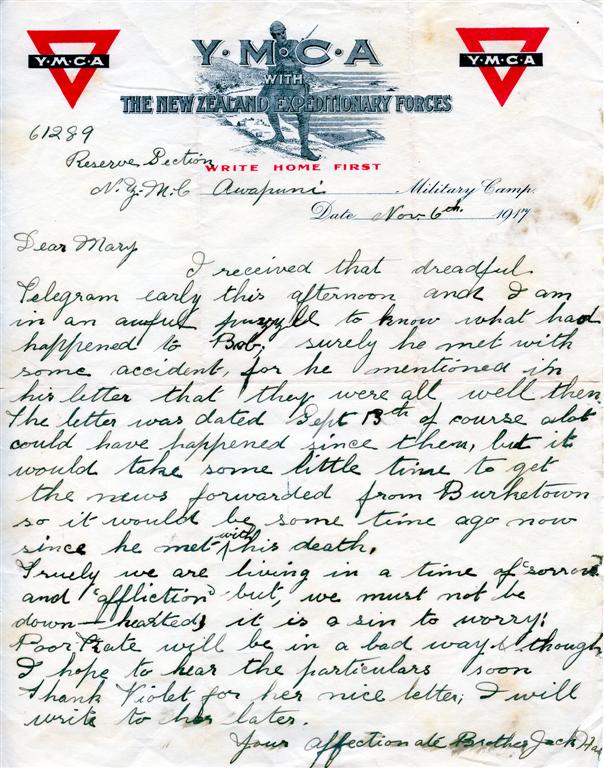 Y·M·C·A
Y·M·C·A
Y·M·C·A
WITH
THE NEW ZEALAND EXPEDITIONARY FORCES
WRITE HOME FIRST
61289
Reserve Section
N.Z.M.C Awapuni Military Camp.
Date Nov 6th 1917
Dear Mary
I received that dreadful
Telegram early this afternoon and I am
in an awful puzyll to know what had
happened to Bob, surely he met with
some accident, for he mentioned in
his letter that they were all well then
The letter was dated Sept 13th of course alot
could have happened since then, but it
would take some little time to get
the news forwarded from Burketown
so it would be some time ago now
since he met with his death.
Truely we are living in a time of "sorrow
and "affliction" but, we must not be
down-hearted, it is a sin to worry!
Poor Kate will be in a bad way though
I hope to hear the particulars soon
Thank Violet for her nice letter; I will
write to her later.
Your affectionate Brother Jack